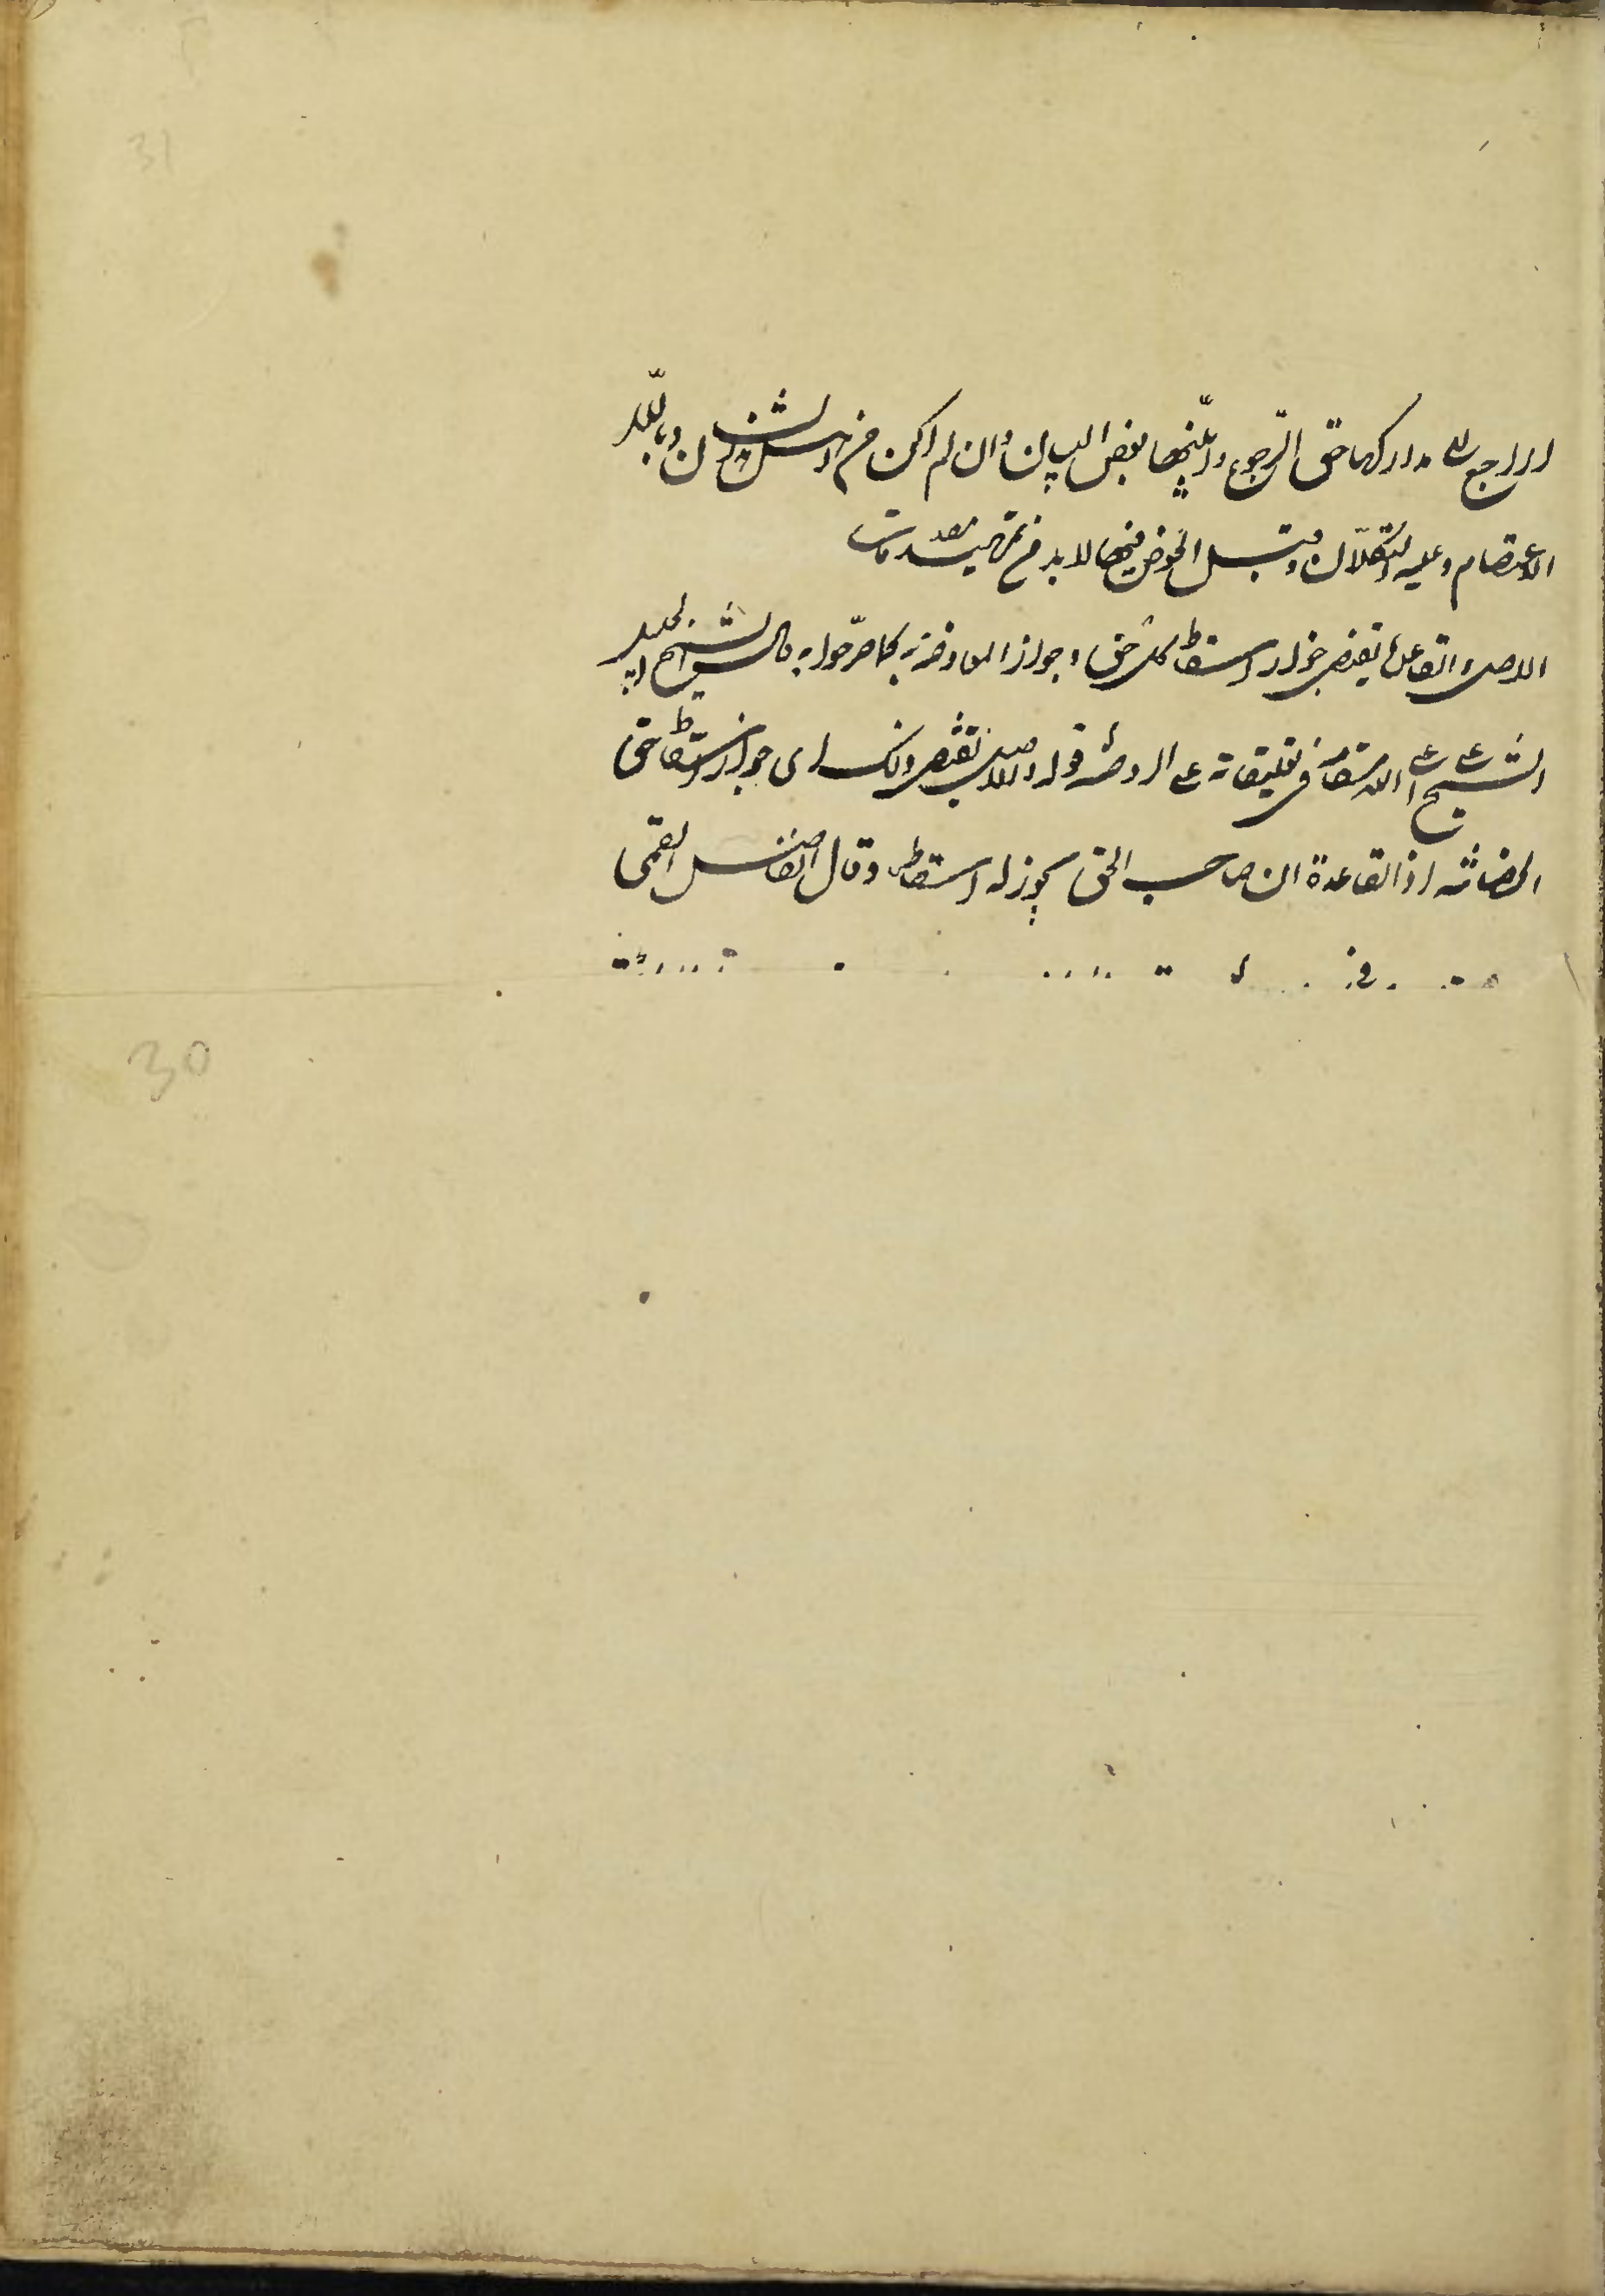 اراجع الى مداركها حق الرجوع وابينها بعض البيان وان لم اكن من اهل الشان وبالله
الاعتصام وعليه التكلان وقبل الخوض فيها لا بد من تمهيد مقدمات
الاصل والقاعدة يقتضى جواز اسقاط كل حق وجواز المعاوضة به كما صرحوا به قال الشيخ الجليل
الشيخ فى تعليقاته على الروضه قوله والاصل يقتضى ذلك اى جواز اسقاط حق
الحضانه اذ القاعدة ان صاحب الحق يجوز له اسقاطه وقال الفاضل القمى
31
30